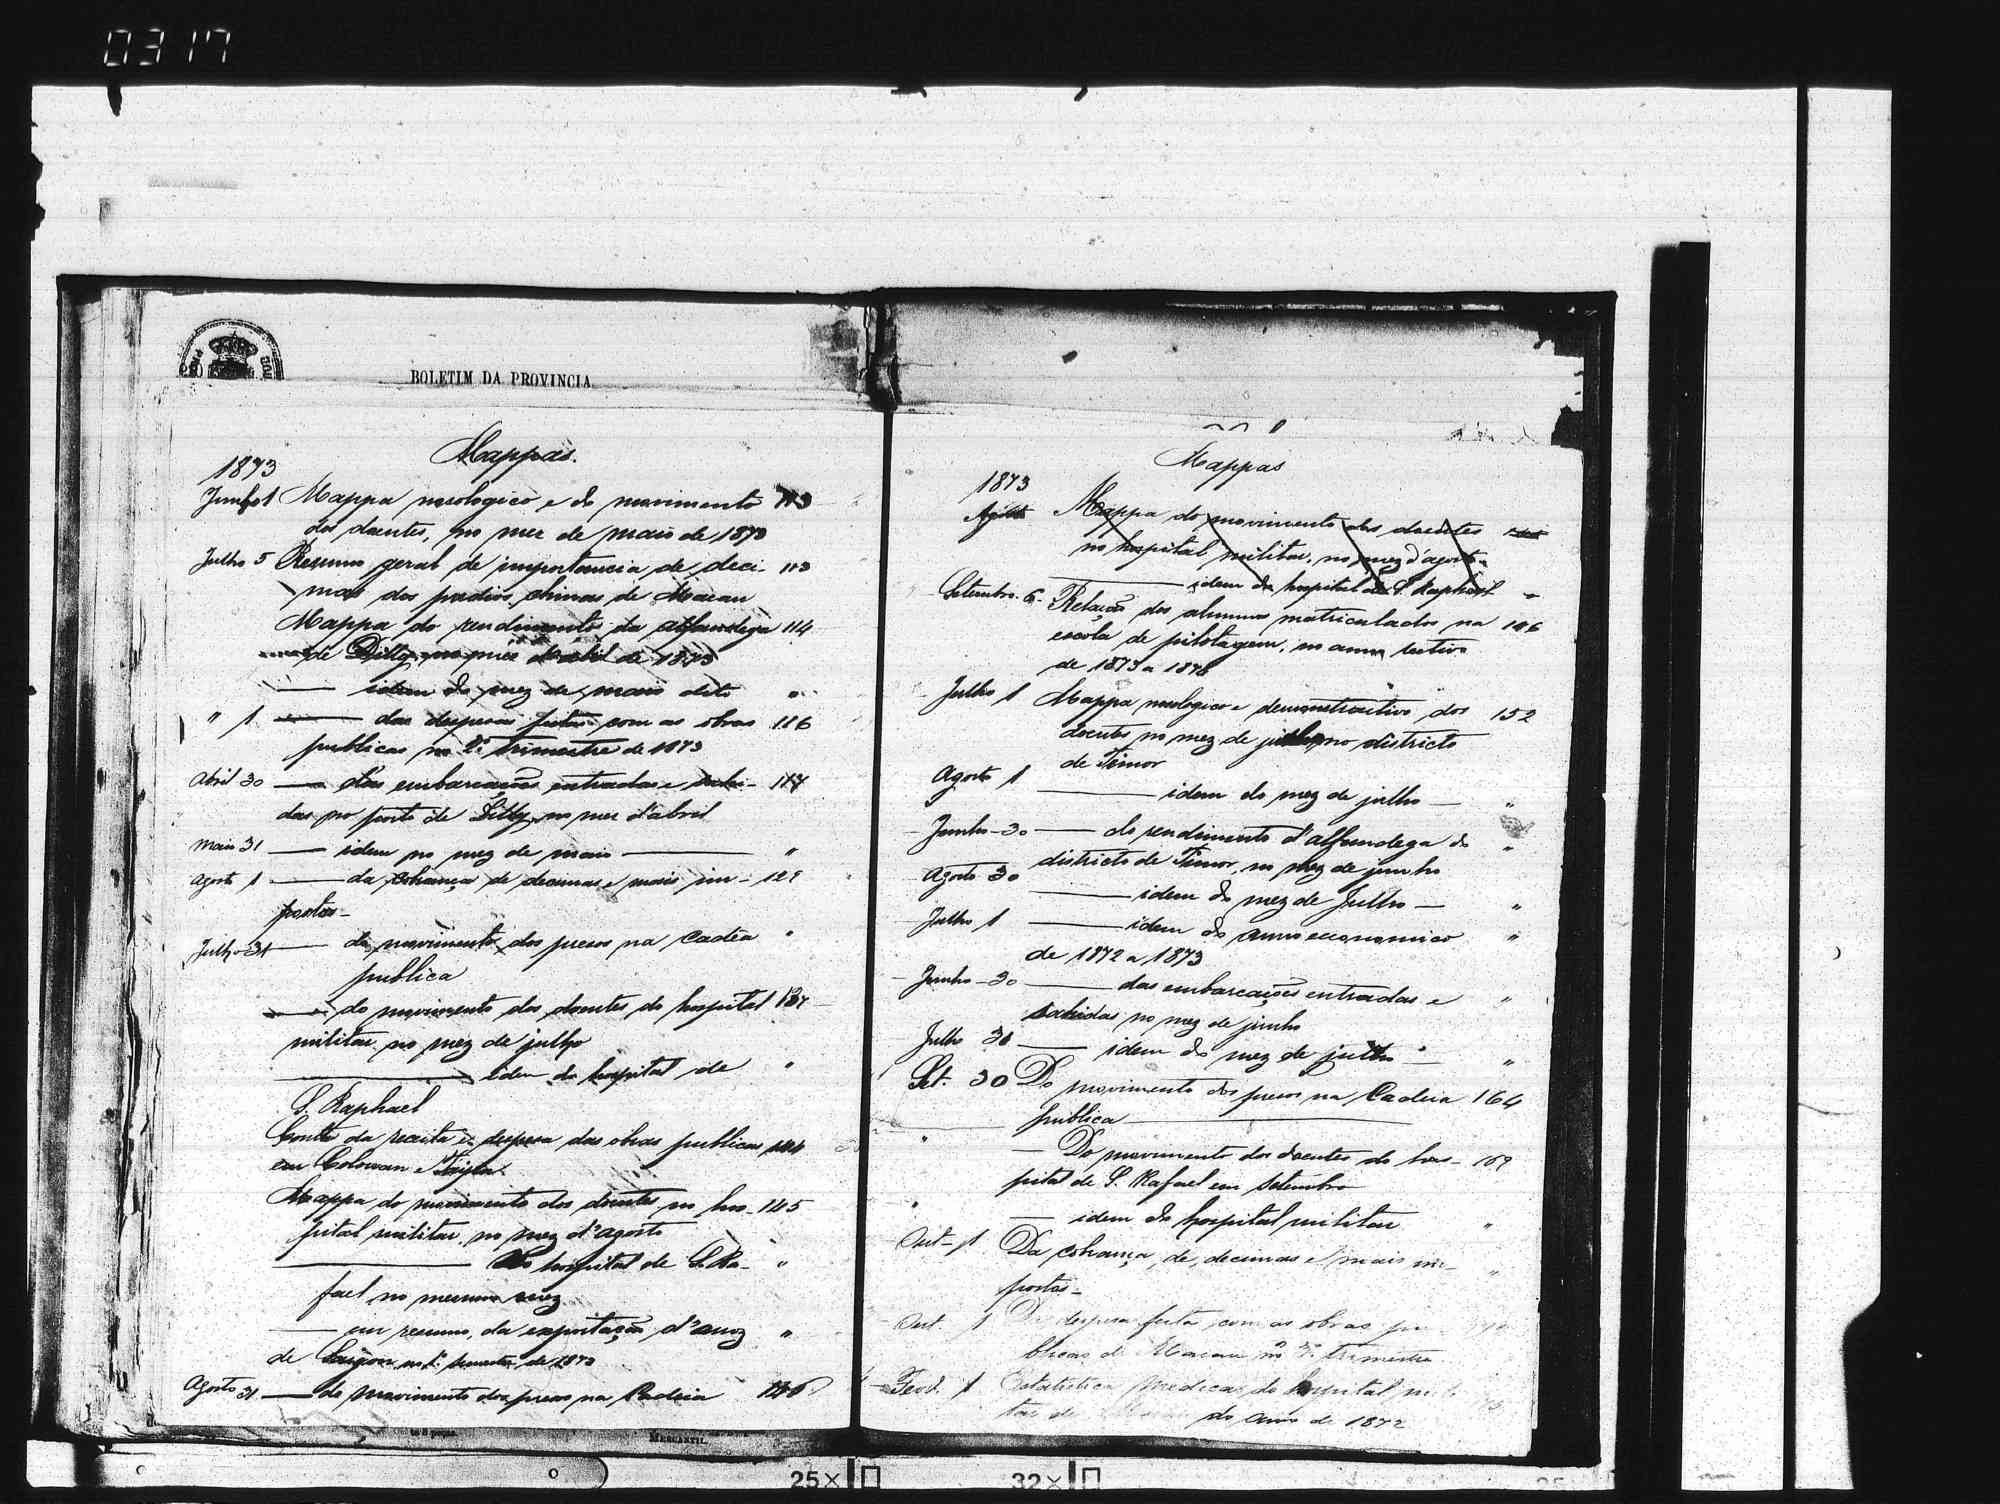 0317
BOLETIM DA PROVINCIA
Mappas.
1873
Junho 1 Mappa nosologico e do movimento 113
dos doentes, no mez de maio de 1873
Julho 5 Resumo geral de importancia de deci- 113
mas dos predios chinas de Macau
Mappa do rendimento da alfandega 114
de Dilly no mez d'abril de 1873
— idem do mez de maio dito "
" 1 — das despesas feitas com as obras 116
publicas no 2º trimestre de 1873
Abril 30 — das embarcações entradas e sahi- 117
das no porto de Dilly, no mez d'abril
Maio 31 — idem no mez de maio — "
Agosto 1 — da cobrança de decimas e mais im- 129
postos -
Julho 31 — do movimento dos presos na Cadêa "
publica
— do movimento dos doentes do hospital 137
militar no mez de julho
— idem do hospital de "
S. Raphael
Conta da receita e despesa das obras publicas 144
em Colowan e Taipa
Mappa do movimento dos doentes no hos- 145
pital militar, no mez d'agosto
— Do hospital de S. Ra- "
fael no mesmo mez
— em resumo, da exportação d'arroz "
de Saigon no 1º semestre de 1873
Agosto 31 — do movimento dos presos na Cadeia 146
Mappas
1873
Agosto Mappa do movimento dos doentes
no hospital militar, no mez d'agosto
— idem do hospital de S. Raphael "
Setembro 6 - Relação dos alumnos matriculados na 146
escola de pilotagem, no anno lectivo
de 1873 a 1874
Julho 1 Mappa nosologico e demonstractivo dos 152
doentes no mez de no districto
de Timor
Agosto 1 — idem do mez de julho — "
Junho - 30 — do rendimento d'alfandega do "
districto de Timor, no mez de junho
Agosto 30 — idem do mez de Julho — "
Julho 1 — idem do anno economico "
de 1872 a 1873
Junho - 30 — das embarcações entradas e "
sahidas no mez de junho
Julho 30 — idem do mez de julho — "
Set. 30 Do movimento dos presos na Cadeia 164
publica —
" — Do movimento dos doentes do hos- 169
pital de S. Rafael em setembro
" — idem do hospital militar "
Out - 1 Da cobrança, de, decimas e mais im- "
postos -
Out. 1 Da despesa feita com as obras pu
blicas de Macau no 3º trimestre
Feve. 1 Estatistica medica do hospital mili
tar de do anno de 1872
MERCANTIL.
25X 32X